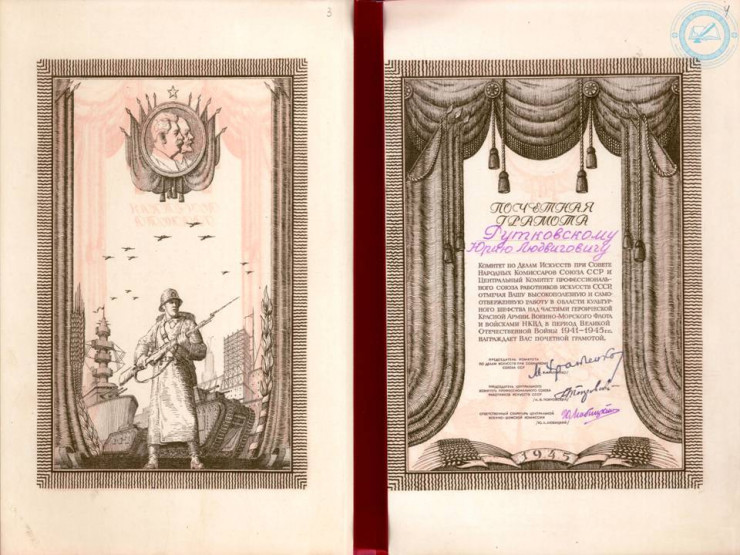 3
4
ПОЧЕТНАЯ
ГРАМОТА
Рутковскому
Юрию Людвиговичу
Комитет по Делам Искусств при Совете
Народных Комиссаров Союза ССР и
Центральный Комитет профессиональ-
ного союза работников искусств СССР,
отмечая Вашу высокополезную и само-
отверженную работу в области культур-
ного шефства над частями героической
Красной Армии, Военно-Морского Флота
и войсками НКВД в период Великой
Отечественной Войны 1941–1945 гг.
награждает Вас почетной грамотой.
ПРЕДСЕДАТЕЛЬ КОМИТЕТА
ПО ДЕЛАМ ИСКУССТВ ПРИ СОВНАРКОМЕ
СОЮЗА ССР
М. Храпченко
ПРЕДСЕДАТЕЛЬ ЦЕНТРАЛЬНОГО
КОМИТЕТА ПРОФЕССИОНАЛЬНОГО СОЮЗА
РАБОТНИКОВ ИСКУССТВ СССР
ОТВЕТСТВЕННЫЙ СЕКРЕТАРЬ ЦЕНТРАЛЬНОЙ
ВОЕННО-ШЕФСКОЙ КОМИССИИ
1945